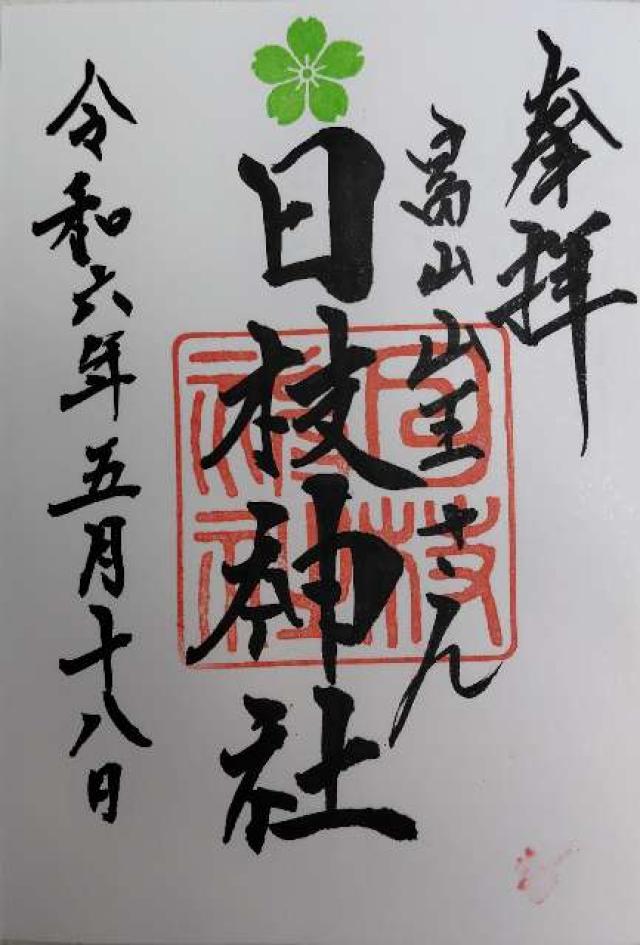 奉拝
高山山王さん
日枝神社
日枝神社
令和六年五月十八日